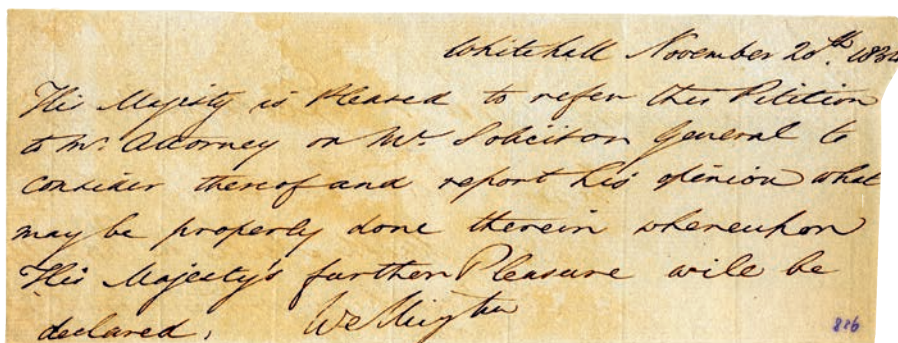 Whitehall November 20th. 1834
His Majesty is Pleased to refer this Petition
to Mr. Attorney or Mr. Solicitor General to
consider thereof and report his opinion what
may be properly done therein whereupon
His Majesty's further Pleasure will be
declared. Wellington
826